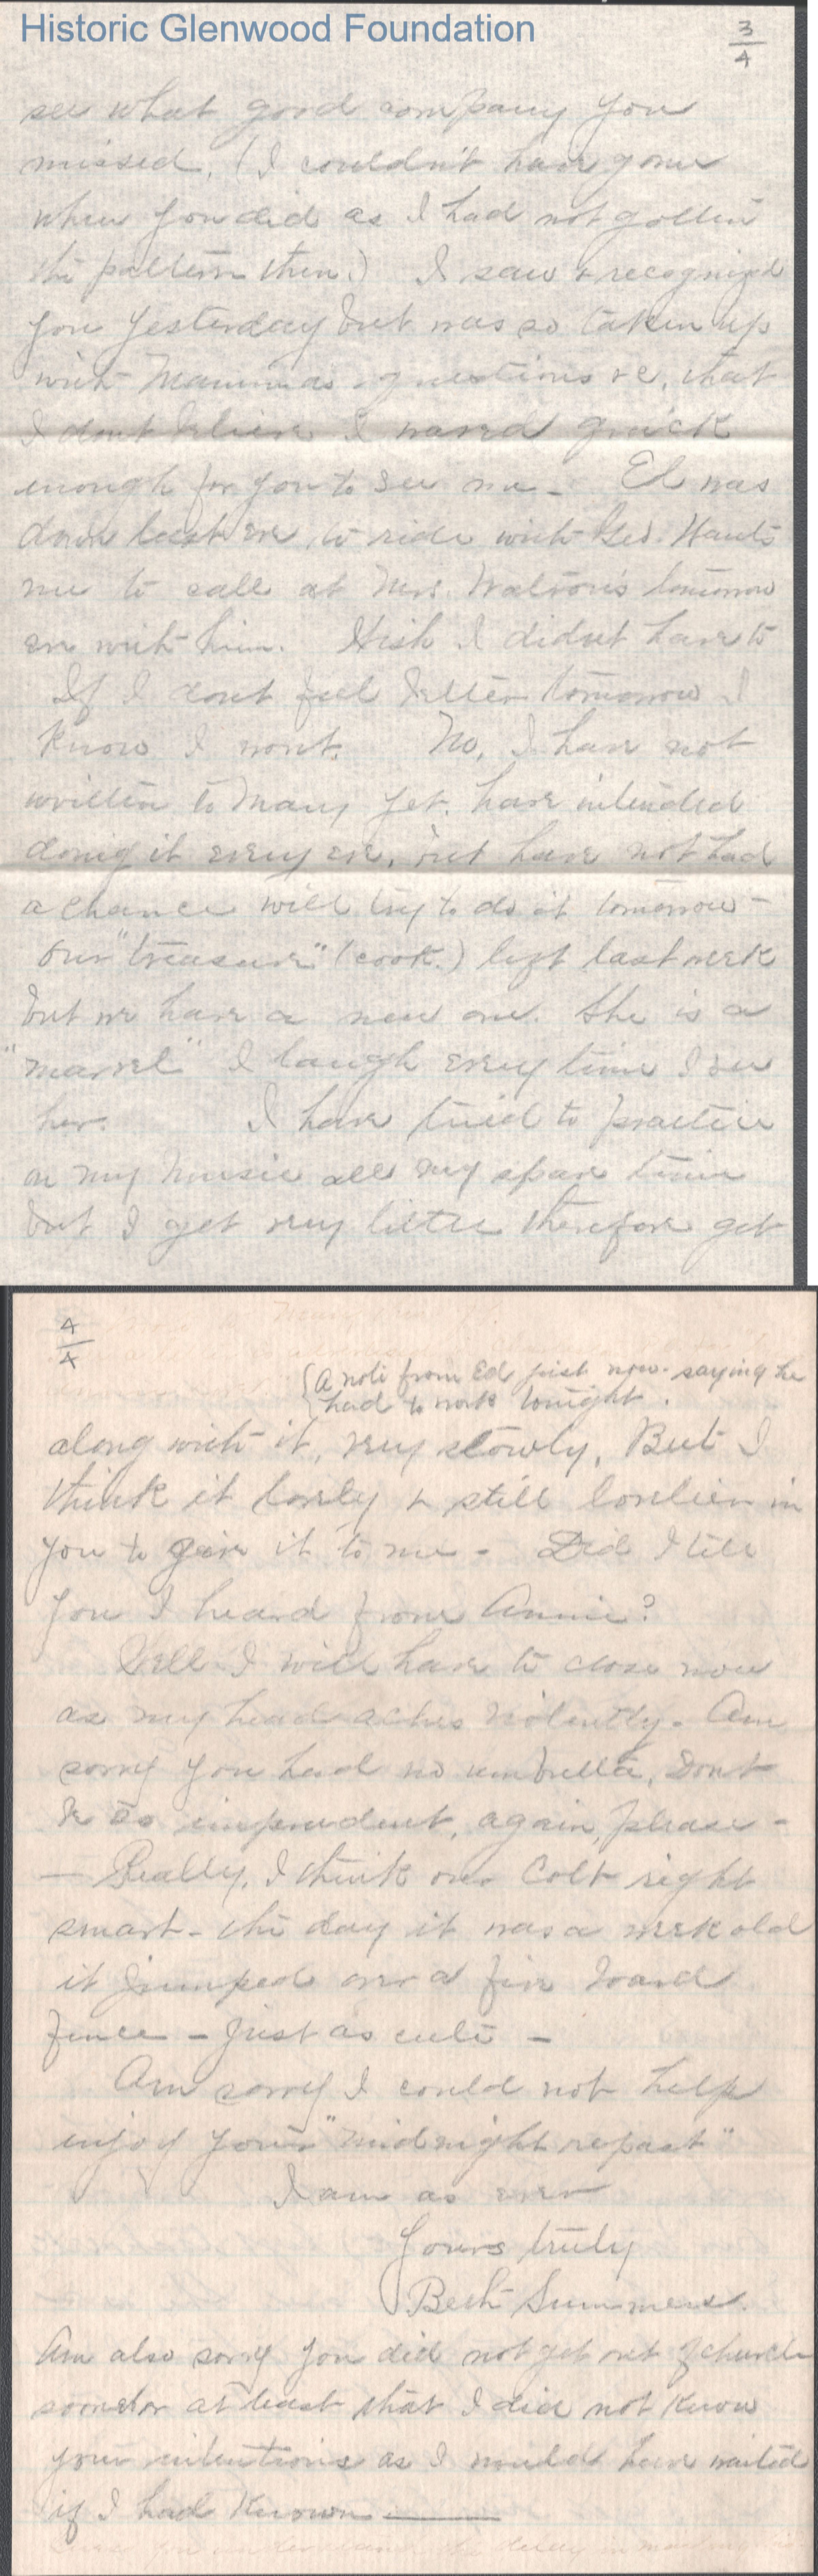 Historic Glenwood Foundation
3/4
see what good company you
missed. (I couldn't have gone
when you did as I had not gotten
the pattern then.) I saw & recognized
you yesterday but was so taken up
with Mamma's questions &c, that
I dont believe I waved quick
enough for you to see me - Ed was
down last eve, to ride with Geo. Wants
me to call at Mrs. Watson's tomorrow
eve with him. Wish I didnt have to
If I dont feel better tomorrow I
know I wont. No, I have not
written to Mary yet, have intended
doing it every eve, but have not had
a chance will try to do it tomorrow -
Our "treasure" (cook.) left last week
but we have a new one. She is a
"marvel" I laugh every time I see
her. I have tried to practice
on my music all my spare time
but I get very little therefore get
4/4
(A note from Ed just now - saying he
had to work tonight.
along with it, very slowly, But I
think it lovely & still lovelier in
you to give it to me - Did I tell
you I heard from Annie?
Well I will have to close now
as my head aches violently. Am
sorry you had no umbrella, Dont
be so imprudent, again, please -
- Really, I think our Colt right
smart - the day it was a week old
it jumped over a five board
fence - just as cute -
Am sorry I could not help
enjoy your "midnight repast"
I am as ever
Yours truly
Besh Summers.
Am also sorry you did not get out of church
sooner or at least that I did not know
your intentions as I would have waited
if I had known